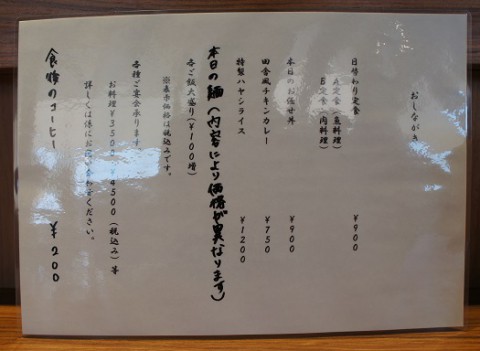 おしながき
日替わり定食 ¥900
A定食(魚料理)
B定食(肉料理)
本日のお任せ丼 ¥900
田舎風チキンカレー ¥750
特製ハヤシライス ¥1200
本日の麺(内容により価格が異なります)
各ご飯大盛り(¥100増)
※表示価格は税込みです。
各種ご宴会承ります
お料理¥3500、¥4500(税込み)等
詳しくは係にお問い合わせください。
食後のコーヒー ¥200